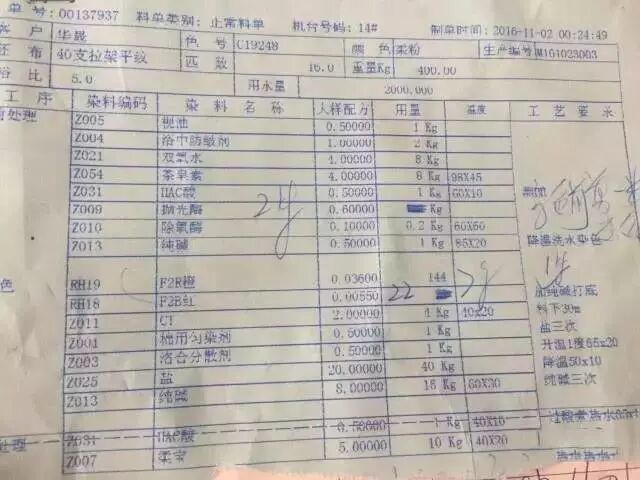 单 号: 00137937 料单类别: 正常料单 机台号码: 14# 制单时间: 2016-11-02 00:24:49
客 户 华晟 色 号 C19248 颜 色 柔粉 生产编号 M161023003
坯 布 40支拉架平纹 匹 数 16.0 重量Kg 400.00
浴 比 5.0 用水量 2000.000
工 序 染料编码 染 料 名 称 大样配方 用量 温度 工 艺 要 求
前处理 Z005 枧油 0.50000 1 Kg
Z004 浴中防皱剂 1.00000 2 Kg
Z021 双氧水 4.00000 8 Kg
Z054 茶皂素 4.00000 8 Kg 98X45
Z031 HAC酸 0.50000 1 Kg 60X10
Z009 抛光酶 0.60000 Kg
Z010 除氧酶 0.10000 0.2 Kg 60X60
Z013 纯碱 0.50000 1 Kg 85X20 降温洗水染色
色 RH19 F2R橙 0.03600 144
RH18 F2B红 0.00550 22 加纯碱打底
Z011 CT 2.00000 4 Kg 40x20 料下30m
Z001 棉用匀染剂 0.50000 1 Kg 盐三次
Z003 洛合分散剂 0.50000 1 Kg 升温1度65x20
Z025 盐 20.00000 40 Kg 降温50x10
Z013 纯碱 8.00000 16 Kg 60X30 纯碱三次
处理 Z031 HAC酸 0.50000 1 Kg 40X10
Z007 柔宝 5.00000 10 Kg 40X20